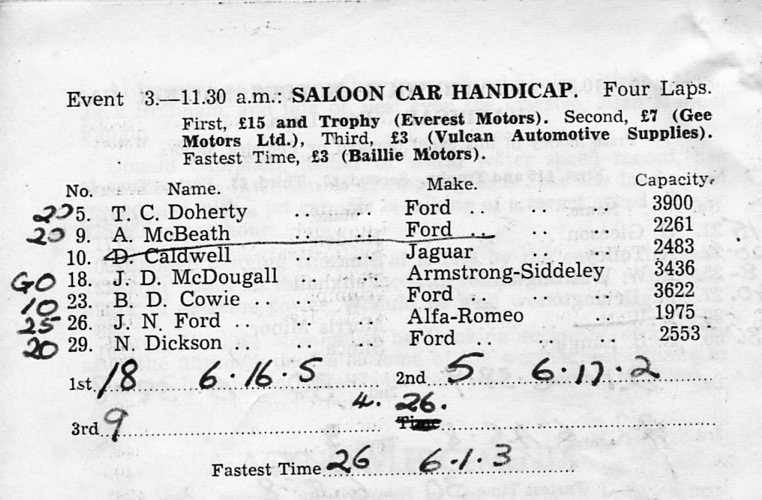 Event 3.—11.30 a.m.: SALOON CAR HANDICAP. Four Laps.
First, £15 and Trophy (Everest Motors). Second, £7 (Gee
Motors Ltd.), Third, £3 (Vulcan Automotive Supplies).
Fastest Time, £3 (Baillie Motors).
No. Name. Make. Capacity.
20 5. T. C. Doherty .. .. .. Ford .. .. .. 3900
20 9. A. McBeath .. .. .. Ford .. .. .. 2261
10. D. Caldwell Jaguar .. .. 2483
GO 18. J. D. McDougall Armstrong-Siddeley 3436
10 23. B. D. Cowie .. .. Ford .. .. .. 3622
25 26. J. N. Ford .. Alfa-Romeo .. 1975
20 29. N. Dickson .. Ford .. .. 2553
1st 18 6·16·5 2nd 5 6·17·2
3rd 9 4. 26. Time
Fastest Time 26 6·1·3